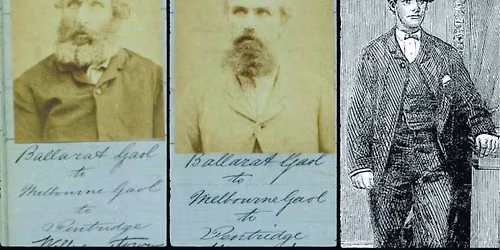 Ballarat Gaol
to
Melbourne Gaol
to
Pentridge
Ballarat Gaol
to
Melbourne Gaol
to
Pentridge